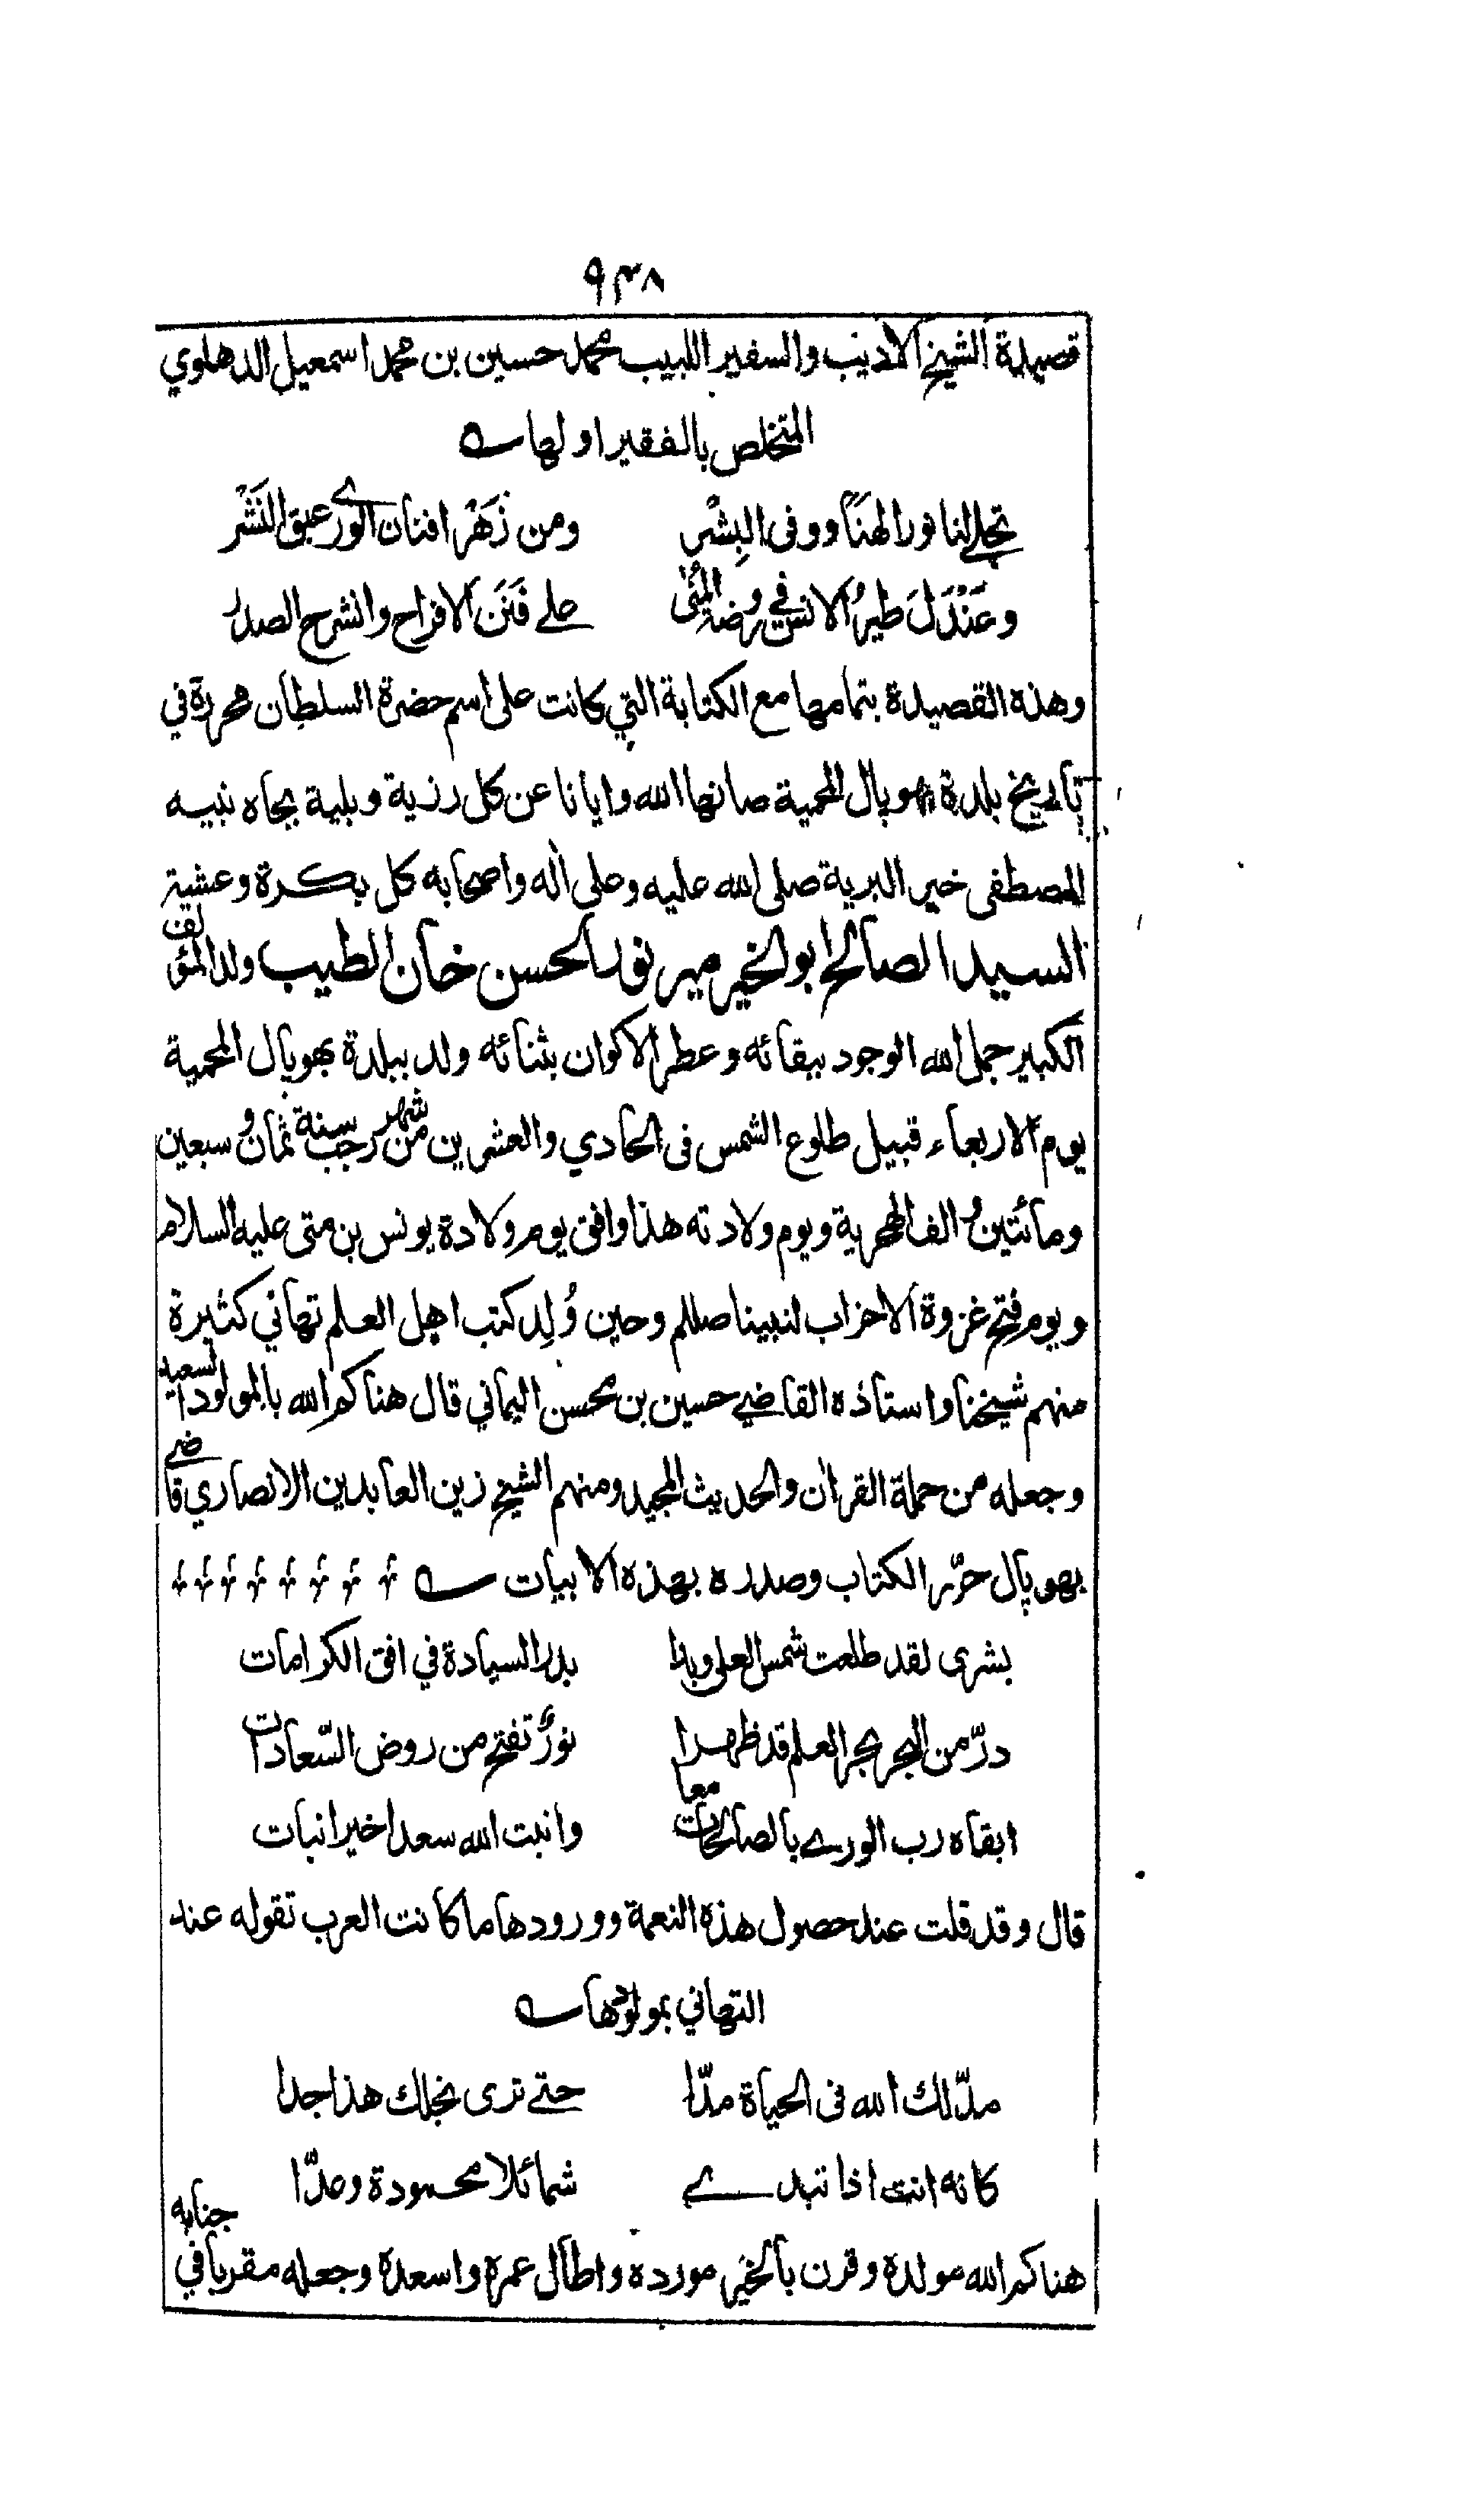 ٩٣٨
قصيدة الشيخ الاديب والسفير اللبيب محمد حسين بن محمد اسمعيل الدهلوي
المتخلص بالفقير اولها
تجلے لنا نور الهَنَا ووفى البِشْر ومن زَهَر افنان الورے عبق النَشْر
وعَنْدَلَ طيرُ الانس في روضة المُنٰى علے فَنَن الافراح وانشرح الصدر
وهذه القصيدة بتمامها مع الكتابة التي كانت على اسم حضرة السلطان محررة في
تاريخ بلدة بهوپال المحمية صانها الله وايانا عن كل رزية وبلية بجاه نبيه
المصطفى خير البرية صلى الله عليه وعلى اٰله واصحابه كل بكرة وعشية
السيد الصالح ابو الخير مير نور الحسن خان الطيب ولد المؤلف
الكبير جمل الله الوجود ببقائه وعطر الاكوان بثنائه ولد ببلدة بهوپال المحمية
يوم الاربعاء قبيل طلوع الشمس فى الحادي والعشرين من شهر رجب سنة ثمان وسبعين
ومائتين والف الهجرية ويوم ولادته هذا وافق يوم ولادة يونس بن متى عليه السلام
ويوم فتح غزوة الاحزاب لنبينا صللم وحين وُلِد كتب اهل العلم تهاني كثيرة
منهم شيخنا واستاذه القاضے حسين بن محسن اليماني قال هناكم الله بالمولود السعيد
وجعله من حملة القراٰن والحديث المجيد ومنهم الشيخ زين العابدين الانصاري قاضے
بهوپال حرّر الكتاب وصدره بهذه الابيات
بشرى لقد طلعت شمس العلى وبدا بدر السيادة في افق الكرامات
درّ من البحر بحر العلم قد ظهرا نورٌ تفتح من روض السّعادات
ابقاه رب الورے بالصالحات معا وانبت الله سعدا خير انبات
قال وقد قلت عند حصول هذه النعمة وورودها ما كانت العرب تقوله عند
التهاني بمولودها
مدّ لك الله فى الحياة مدّا حتے ترى نجلك هذا جدا
كانه انت اذا تبدے شمائلا محمودة وعدّا
هناكم الله مولده وقرن بالخير مورده واطال عمره واسعده وجعله مقربا في جنابه